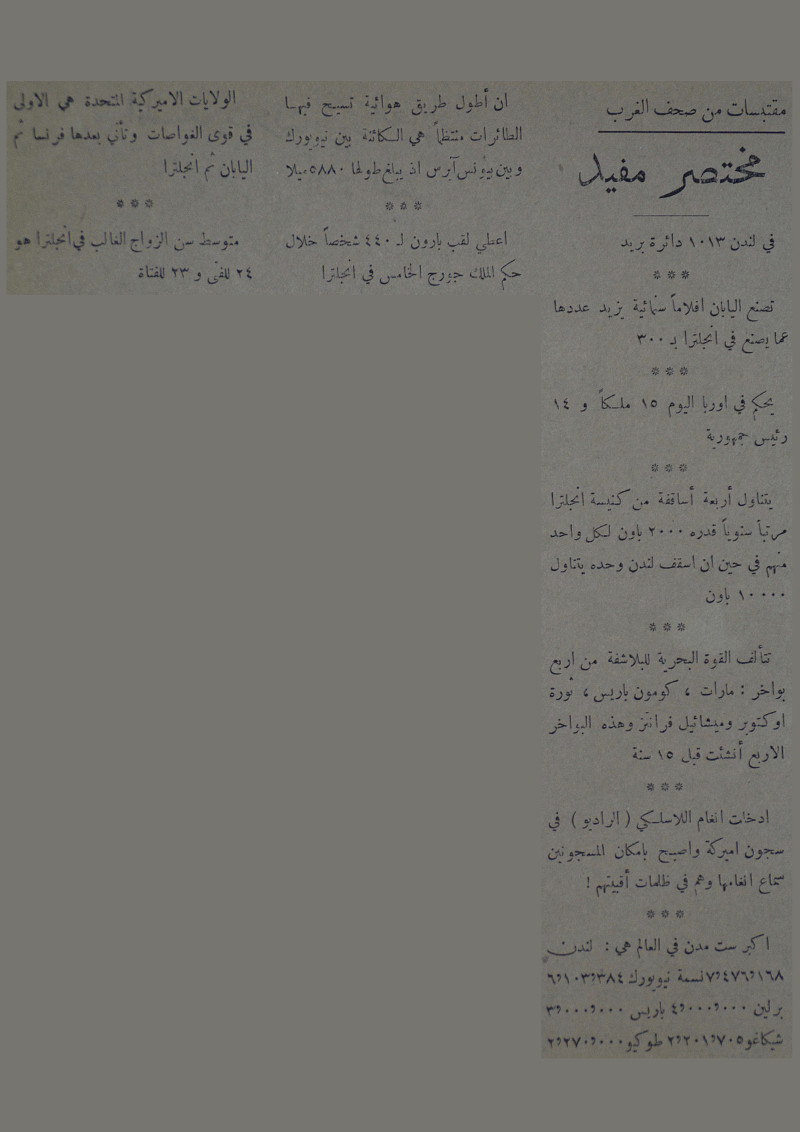 مقتبسات من صحف الغرب
مختصر مفيد
في لندن ١٠١٣ دائرة بريد
* * *
تصنع اليابان افلاماً سنمائية يزيد عددها
عما يصنع في انجلترا بـ ٣٠٠
* * *
يحكم في اوربا اليوم ١٥ ملكاً و ١٤
رئيس جمهورية
* * *
يتناول أربعة أساقفة من كنيسة انجلترا
مرتباً سنوياً قدره ٢٠٠٠ باون لكل واحد
منهم في حين ان اسقف لندن وحده يتناول
١٠٠٠٠ باون
* * *
تتألف القوة البحرية للبلاشفة من اربع
بواخر : مارات ، كومون باريس ، ثورة
اوكتوبر وميشائيل فرانتز وهذه البواخر
الاربع أنشئت قبل ١٥ سنة
* * *
ادخلت انغام اللاسلكي ( الراديو ) في
سجون اميركة واصبح بامكان المسجونين
سماع انغامها وهم في ظلمات أقبيتهم !
* * *
اكبر ست مدن في العالم هي : لندن
٧٬٤٧٦٬١٦٨ نسمة نيويورك ٦٬١٠٣٬٣٨٤
برلين ٤٬٠٠٠٬٠٠٠ باريس ٣٬٠٠٠٬٠٠٠
شيكاغو ٢٬٢٠١٬٧٠٥ طوكيو ٢٬٢٧٠٬٠٠٠
ان أطول طريق هوائية تسيح فيها
الطائرات منتظماً هي الكائنة بين نيويورك
وبين بيونس آيرس اذ يبلغ طولها ٥٨٨٠ ميلا
* * *
اعطي لقب بارون لـ ٤٤٠ شخصاً خلال
حكم الملك جورج الخامس في انجلترا
الولايات الاميركية المتحدة هي الاولى
في قوى الغواصات وتأتي بعدها فرنسا ثم
اليابان ثم انجلترا
* * *
متوسط سن الزواج الغالب في انجلترا هو
٢٤ للفتى و ٢٣ للفتاة